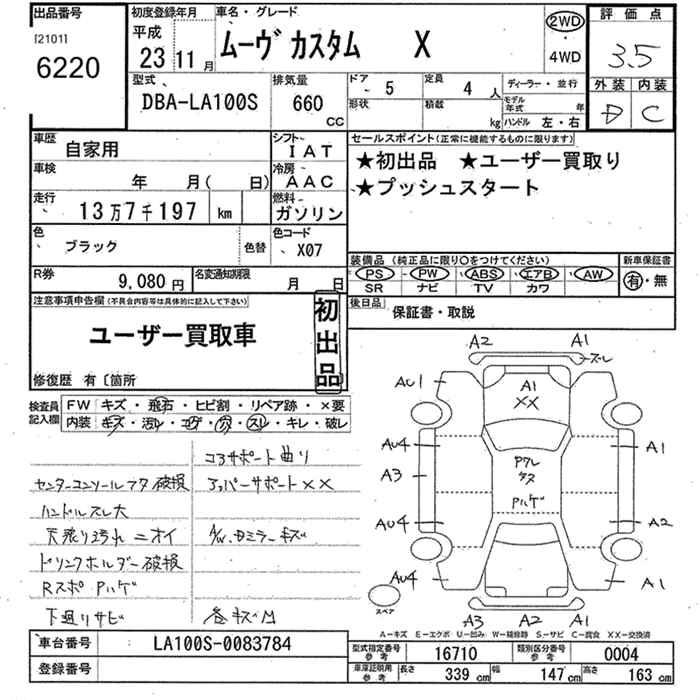 出品番号 初度登録年月 車名・グレード 評価点
[2101]
6220
平成
23 11月
ムーヴ カスタム X
2WD
・
4WD
3.5
型式 排気量 ドア 定員 ディーラー・並行 外装 内装
DBA-LA100S 660 CC 5 4人
形状 積載 kg モデル年式 年
ハンドル 左・右
D C
車歴 自家用 シフト IAT
セールスポイント(正常に機能するものに限ります)
★初出品 ★ユーザー買取り
★プッシュスタート
車検 年 月( 日) 冷房 AAC
走行 13万7千197 km 燃料 ガソリン
色 ブラック 色替 色コード X07
装備品(純正品に限り○をつけてください) 新車保証書
PS PW ABS エアB AW
SR ナビ TV カワ
有・無
R券 9,080円 名変通知期限 月 日
注意事項申告欄(不具合内容等は具体的に記入して下さい)
初出品
後日品 保証書・取説
ユーザー買取車
修復歴 有〔箇所
検査員記入欄 FW キズ・飛石・ヒビ割・リペア跡・×要
内装 キズ・汚レ・コゲ・穴・スレ・キレ・破レ
コアサポート曲り
センターコンソールフタ破損 アッパーサポート××
ハンドルスレ大
天張り汚れ ニオイ A/W、Dミラーキズ
ドリンクホルダー破損
Rスポ Pハゲ
下廻りサビ
A2 A1
スレ
AU1 A1
××
AU4 A1
Pワレ
A3
Pハゲ
AU4 A2
AU4 A1
スペア
A3 A2 A1
A-キズ E-エクボ U-凹み W-補修跡 S-サビ C-腐食 XX-交換済
車台番号 LA100S-0083784
登録番号
型式指定番号 参考 16710 類別区分番号 参考 0004
車庫証明用 参考 長さ 339 cm 幅 147 cm 高さ 163 cm